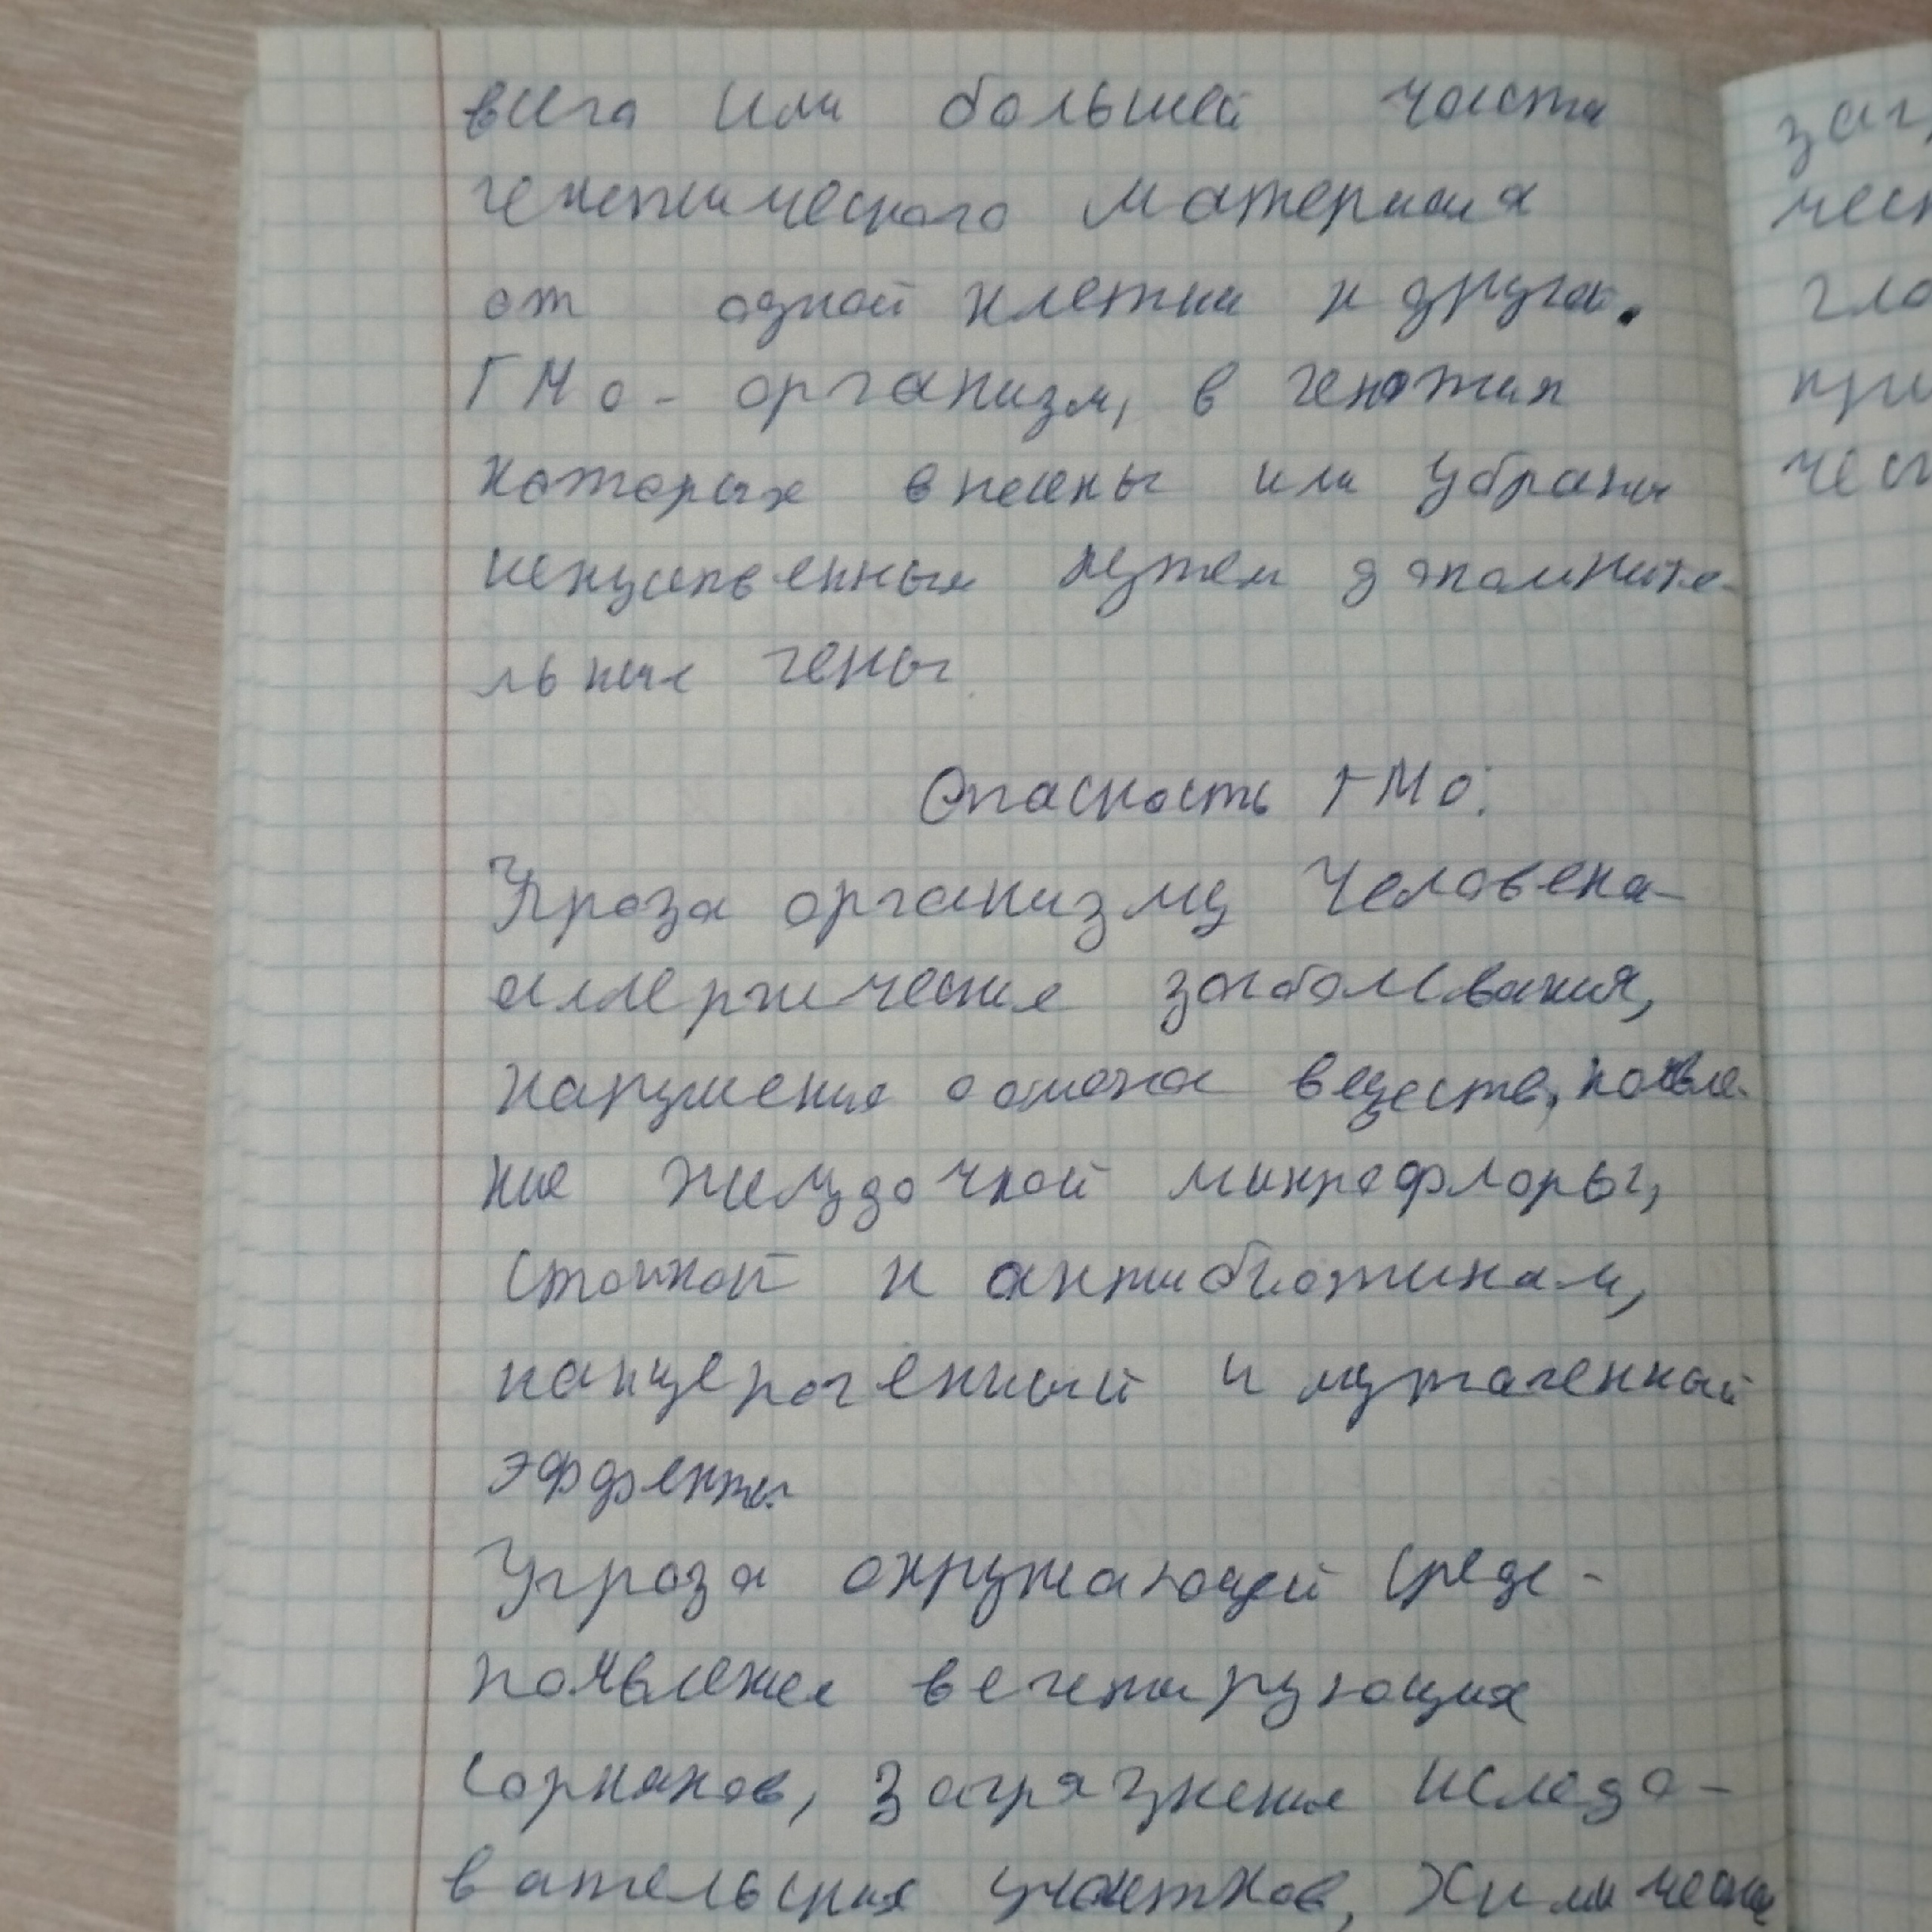 всего или большей части
генетического материала
от одной клетки к другой.
ГМО - организм, в генотип
которых внесены или убраны
искуственным путем дополните-
льные гены.
Опасность ГМО:
Угроза организму человека-
аллергические заболевания,
нарушение обмена веществ, появле-
ние желудочной микрофлоры,
стойкой к антибиотикам,
канцерогенный и мутагенный
эффекты
Угроза окружающей среде -
появление вегетирующих
сорняков, загрязнение иследо-
вательских участков, химическое
заг
чест
гло
при
чест